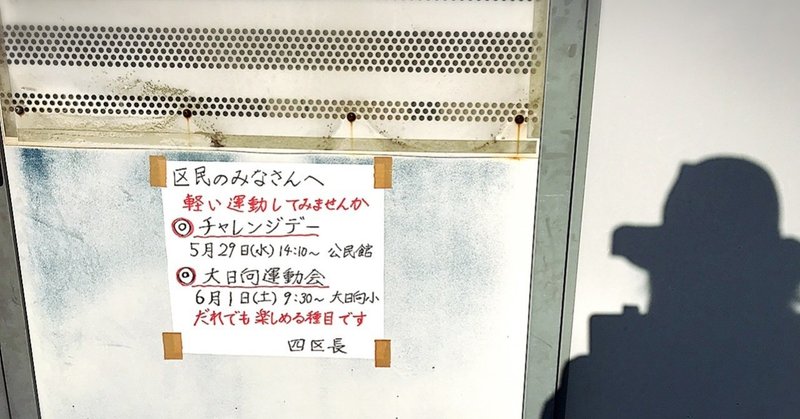 区民のみなさんへ
軽い運動してみませんか
◎チャレンジデー
5月29日(水)14:10~ 公民館
◎大日向運動会
6月1日(土)9:30~ 大日向小
だれでも楽しめる種目です
四区長